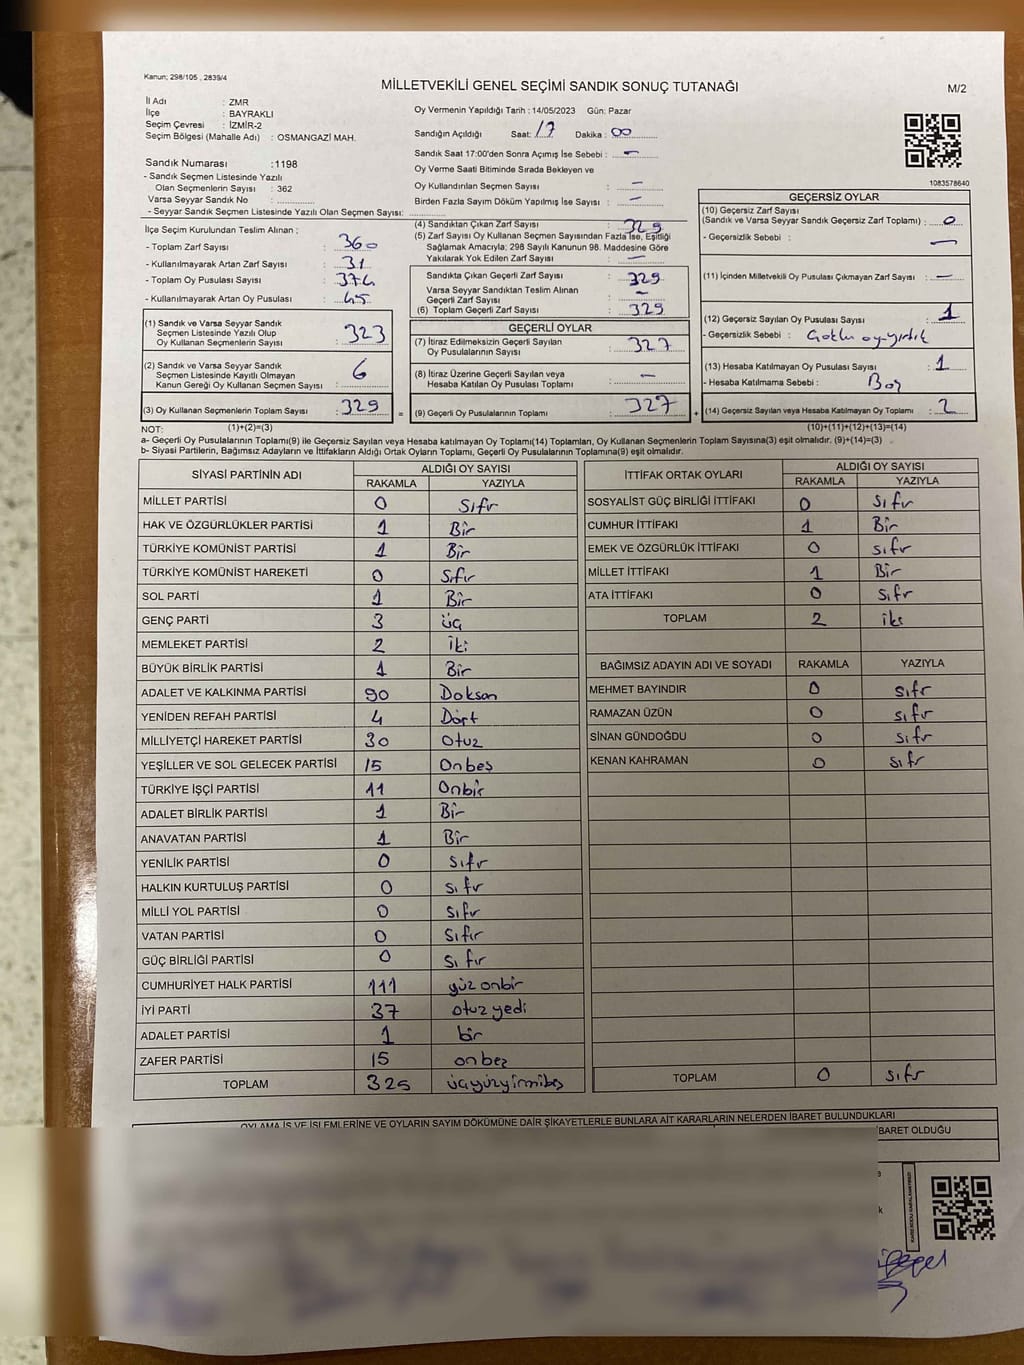 Kanun; 298/105 , 2839/4
MİLLETVEKİLİ GENEL SEÇİMİ SANDIK SONUÇ TUTANAĞI
M/2
İl Adı : ZMR
İlçe : BAYRAKLI
Seçim Çevresi : İZMİR-2
Seçim Bölgesi (Mahalle Adı) : OSMANGAZİ MAH.
Sandık Numarası :1198
- Sandık Seçmen Listesinde Yazılı
Olan Seçmenlerin Sayısı : 362
Varsa Seyyar Sandık No :
- Seyyar Sandık Seçmen Listesinde Yazılı Olan Seçmen Sayısı:
İlçe Seçim Kurulundan Teslim Alınan ;
- Toplam Zarf Sayısı : 360
- Kullanılmayarak Artan Zarf Sayısı : 31
- Toplam Oy Pusulası Sayısı : 374
- Kullanılmayarak Artan Oy Pusulası : 45
(1) Sandık ve Varsa Seyyar Sandık
Seçmen Listesinde Yazılı Olup
Oy Kullanan Seçmenlerin Sayısı : 323
(2) Sandık ve Varsa Seyyar Sandık
Seçmen Listesinde Kayıtlı Olmayan
Kanun Gereği Oy Kullanan Seçmen Sayısı : 6
(3) Oy Kullanan Seçmenlerin Toplam Sayısı : 329
Oy Vermenin Yapıldığı Tarih : 14/05/2023 Gün: Pazar
Sandığın Açıldığı Saat: 17 Dakika : 00
Sandık Saat 17:00'den Sonra Açımış İse Sebebi : -
Oy Verme Saati Bitiminde Sırada Bekleyen ve
Oy Kullandırılan Seçmen Sayısı : -
Birden Fazla Sayım Döküm Yapılmış İse Sayısı : -
(4) Sandıktan Çıkan Zarf Sayısı : 329
(5) Zarf Sayısı Oy Kullanan Seçmen Sayısından Fazla İse, Eşitliği
Sağlamak Amacıyla; 298 Sayılı Kanunun 98. Maddesine Göre
Yakılarak Yok Edilen Zarf Sayısı : -
Sandıkta Çıkan Geçerli Zarf Sayısı : 329
Varsa Seyyar Sandıktan Teslim Alınan
Geçerli Zarf Sayısı : -
(6) Toplam Geçerli Zarf Sayısı : 329
GEÇERLİ OYLAR
(7) İtiraz Edilmeksizin Geçerli Sayılan
Oy Pusulalarının Sayısı : 327
(8) İtiraz Üzerine Geçerli Sayılan veya
Hesaba Katılan Oy Pusulası Toplamı : -
= (9) Geçerli Oy Pusulalarının Toplamı : 327 +
1083578640
GEÇERSİZ OYLAR
(10) Geçersiz Zarf Sayısı
(Sandık ve Varsa Seyyar Sandık Geçersiz Zarf Toplamı) : 0
- Geçersizlik Sebebi : -
(11) İçinden Milletvekili Oy Pusulası Çıkmayan Zarf Sayısı : -
(12) Geçersiz Sayılan Oy Pusulası Sayısı : 1
- Geçersizlik Sebebi : Çoklu oy-yırtık
(13) Hesaba Katılmayan Oy Pusulası Sayısı : 1
- Hesaba Katılmama Sebebi : Boş
(14) Geçersiz Sayılan veya Hesaba Katılmayan Oy Toplamı : 2
NOT: (1)+(2)=(3) (10)+(11)+(12)+(13)=(14)
a- Geçerli Oy Pusulalarının Toplamı(9) ile Geçersiz Sayılan veya Hesaba katılmayan Oy Toplamı(14) Toplamları, Oy Kullanan Seçmenlerin Toplam Sayısına(3) eşit olmalıdır. (9)+(14)=(3)
b- Siyasi Partilerin, Bağımsız Adayların ve İttifakların Aldığı Ortak Oyların Toplamı, Geçerli Oy Pusulalarının Toplamına(9) eşit olmalıdır.
SİYASİ PARTİNİN ADI ALDIĞI OY SAYISI
RAKAMLA YAZIYLA
MİLLET PARTİSİ 0 Sıfır
HAK VE ÖZGÜRLÜKLER PARTİSİ 1 Bir
TÜRKİYE KOMÜNİST PARTİSİ 1 Bir
TÜRKİYE KOMÜNİST HAREKETİ 0 Sıfır
SOL PARTİ 1 Bir
GENÇ PARTİ 3 üç
MEMLEKET PARTİSİ 2 iki
BÜYÜK BİRLİK PARTİSİ 1 Bir
ADALET VE KALKINMA PARTİSİ 90 Doksan
YENİDEN REFAH PARTİSİ 4 Dört
MİLLİYETÇİ HAREKET PARTİSİ 30 Otuz
YEŞİLLER VE SOL GELECEK PARTİSİ 15 Onbeş
TÜRKİYE İŞÇİ PARTİSİ 11 Onbir
ADALET BİRLİK PARTİSİ 1 Bir
ANAVATAN PARTİSİ 1 Bir
YENİLİK PARTİSİ 0 Sıfır
HALKIN KURTULUŞ PARTİSİ 0 sıfır
MİLLİ YOL PARTİSİ 0 Sıfır
VATAN PARTİSİ 0 Sıfır
GÜÇ BİRLİĞİ PARTİSİ 0 Sıfır
CUMHURİYET HALK PARTİSİ 111 yüz onbir
İYİ PARTİ 37 otuz yedi
ADALET PARTİSİ 1 bir
ZAFER PARTİSİ 15 onbeş
TOPLAM 325 üçyüzyirmibeş
İTTİFAK ORTAK OYLARI ALDIĞI OY SAYISI
RAKAMLA YAZIYLA
SOSYALİST GÜÇ BİRLİĞİ İTTİFAKI 0 Sıfır
CUMHUR İTTİFAKI 1 Bir
EMEK VE ÖZGÜRLÜK İTTİFAKI 0 sıfır
MİLLET İTTİFAKI 1 Bir
ATA İTTİFAKI 0 Sıfır
TOPLAM 2 iki
BAĞIMSIZ ADAYIN ADI VE SOYADI RAKAMLA YAZIYLA
MEHMET BAYINDIR 0 sıfır
RAMAZAN ÜZÜN 0 sıfır
SİNAN GÜNDOĞDU 0 sıfır
KENAN KAHRAMAN 0 sıfır
TOPLAM 0 sıfır
OYLAMA İŞ VE İŞLEMLERİNE VE OYLARIN SAYIM DÖKÜMÜNE DAİR ŞİKAYETLERLE BUNLARA AİT KARARLARIN NELERDEN İBARET BULUNDUKLARI
İBARET OLDUĞU